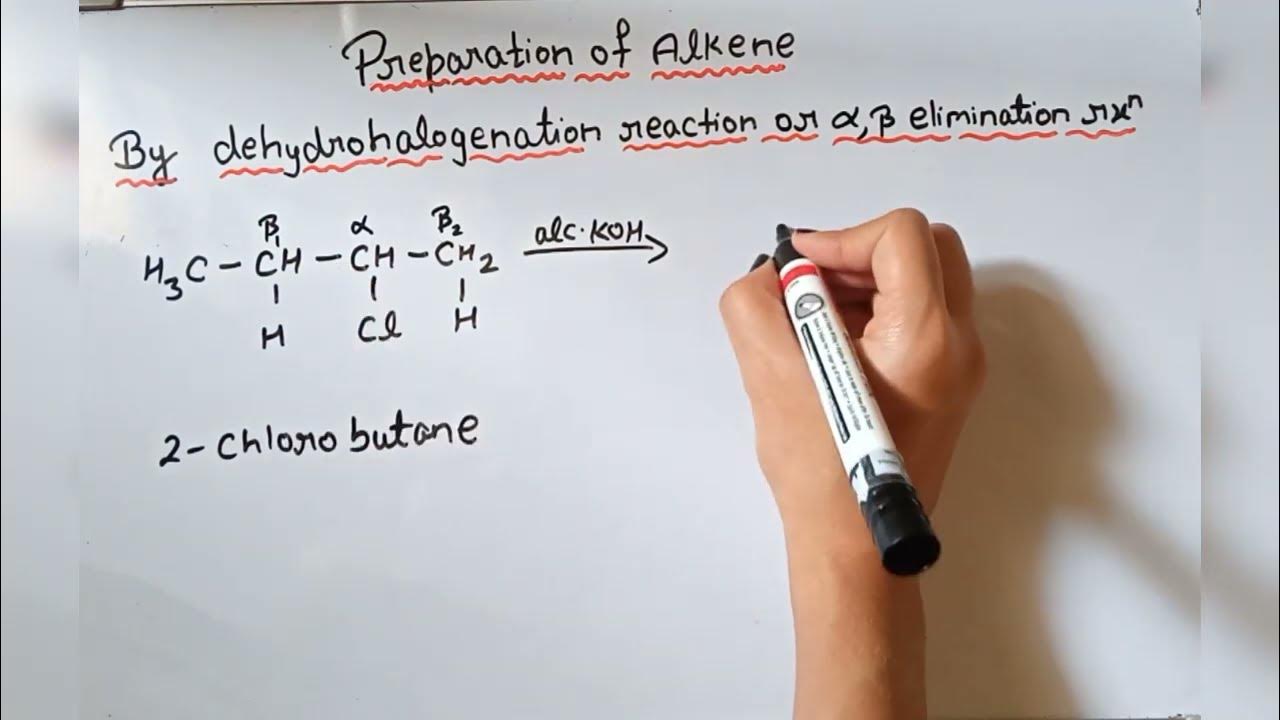 Preparation of Alkene
By dehydrohalogenation reaction or α,β elimination rxⁿ
β₁ α β₂
H₃C – CH – CH – CH₂ alc·KOH →
H Cl H
2- Chloro butane